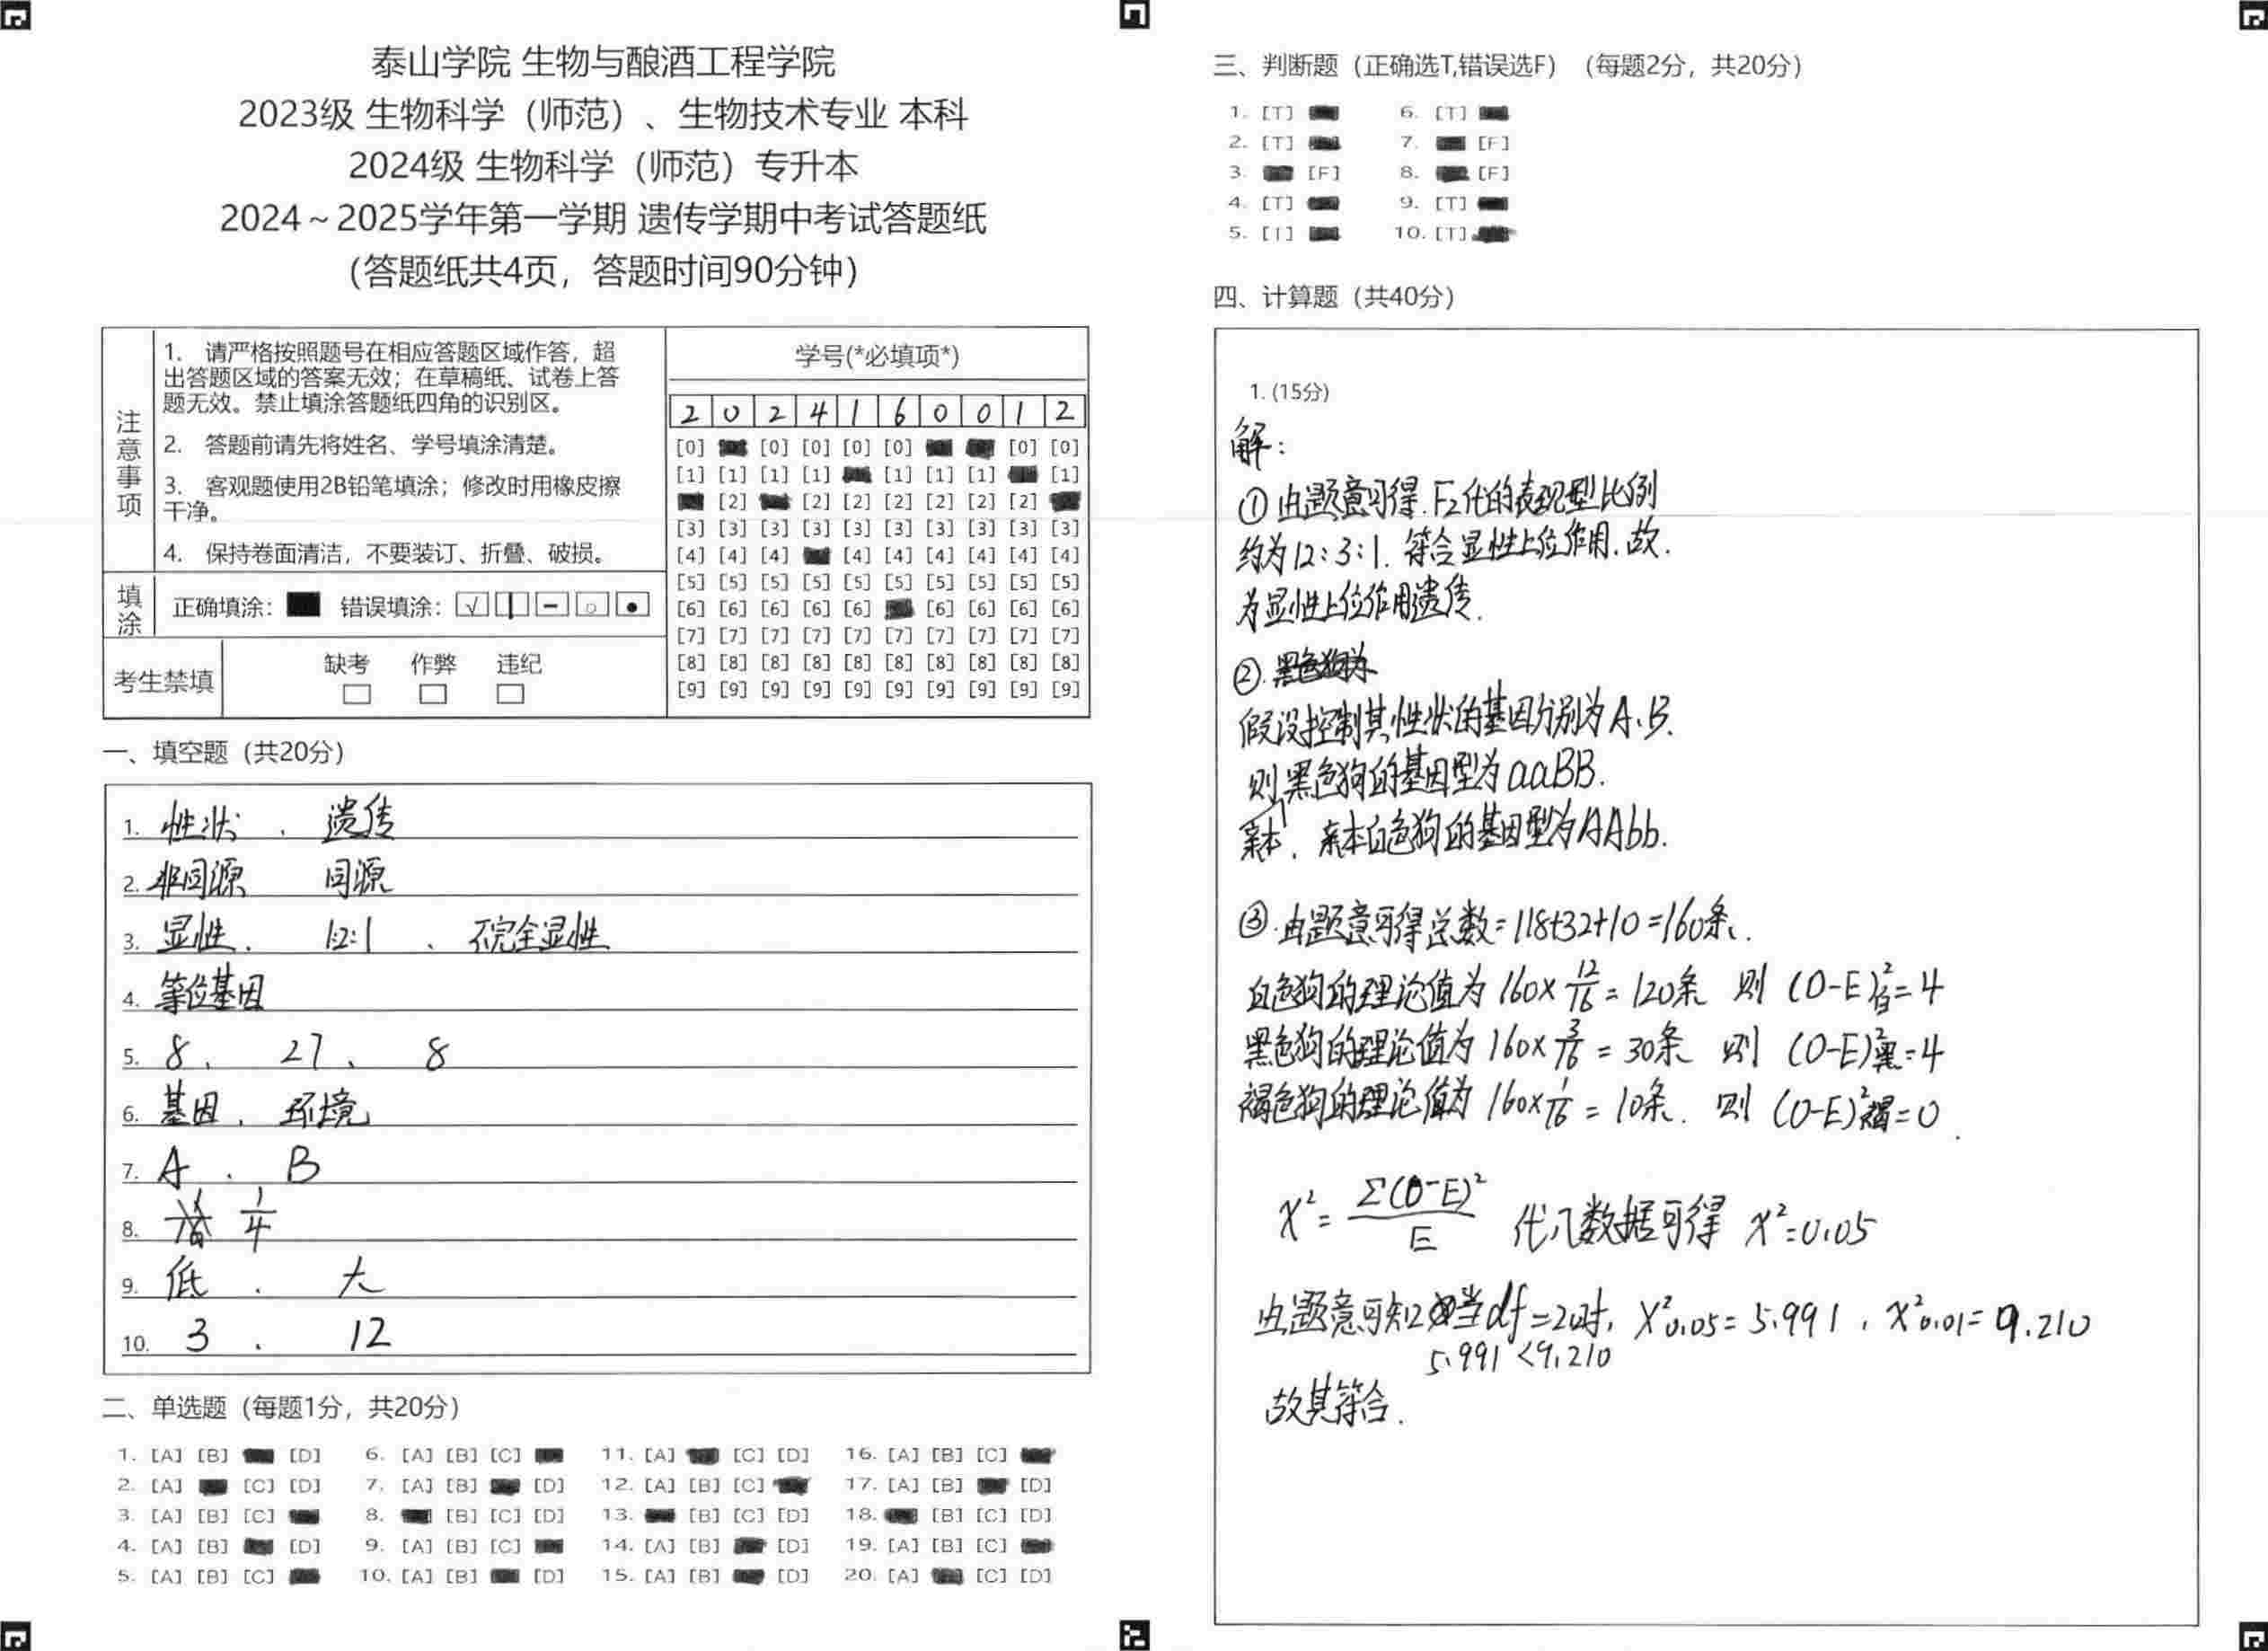 泰山学院 生物与酿酒工程学院
2023级 生物科学（师范）、生物技术专业 本科
2024级 生物科学（师范）专升本
2024～2025学年第一学期 遗传学期中考试答题纸
（答题纸共4页，答题时间90分钟）
注意事项
1. 请严格按照题号在相应答题区域作答，超
出答题区域的答案无效；在草稿纸、试卷上答
题无效。禁止填涂答题纸四角的识别区。
2. 答题前请先将姓名、学号填涂清楚。
3. 客观题使用2B铅笔填涂；修改时用橡皮擦
干净。
4. 保持卷面清洁，不要装订、折叠、破损。
填涂
正确填涂： 错误填涂：
考生禁填
缺考 作弊 违纪
学号(*必填项*)
2 0 2 4 1 6 0 0 1 2
[0] [0] [0] [0] [0] [0] [0]
[1] [1] [1] [1] [1] [1] [1] [1]
[2] [2] [2] [2] [2] [2] [2]
[3] [3] [3] [3] [3] [3] [3] [3] [3] [3]
[4] [4] [4] [4] [4] [4] [4] [4] [4]
[5] [5] [5] [5] [5] [5] [5] [5] [5] [5]
[6] [6] [6] [6] [6] [6] [6] [6] [6]
[7] [7] [7] [7] [7] [7] [7] [7] [7] [7]
[8] [8] [8] [8] [8] [8] [8] [8] [8] [8]
[9] [9] [9] [9] [9] [9] [9] [9] [9] [9]
一、填空题（共20分）
1. 性状 、 遗传
2. 非同源 同源
3. 显性、 1:2:1 、 不完全显性
4. 等位基因
5. 8、 27、 8
6. 基因、 环境
7. A 、 B
8. 1/4
9. 低 、 大
10. 3 、 12
二、单选题（每题1分，共20分）
1. [A] [B] [D] 6. [A] [B] [C] 11. [A] [C] [D] 16. [A] [B] [C]
2. [A] [C] [D] 7. [A] [B] [D] 12. [A] [B] [C] 17. [A] [B] [D]
3. [A] [B] [C] 8. [B] [C] [D] 13. [B] [C] [D] 18. [B] [C] [D]
4. [A] [B] [D] 9. [A] [B] [C] 14. [A] [B] [D] 19. [A] [B] [C]
5. [A] [B] [C] 10. [A] [B] [D] 15. [A] [B] [D] 20. [A] [C] [D]
三、判断题（正确选T,错误选F）（每题2分，共20分）
1. [T] 6. [T]
2. [T] 7. [F]
3. [F] 8. [F]
4. [T] 9. [T]
5. [T] 10. [T]
四、计算题（共40分）
1. (15分)
解：
① 由题意可得.F₂代的表现型比例
约为12:3:1. 符合显性上位作用.故.
为显性上位作用遗传.
②. 黑色狗为
假设控制其性状的基因分别为A、B.
则黑色狗的基因型为aaBB.
亲本、亲本白色狗的基因型为AAbb.
③.由题意可得总数=118+32+10=160条.
白色狗的理论值为160×12/16=120条 则 (O-E)²白=4
黑色狗的理论值为160×3/16=30条 则 (O-E)²黑=4
褐色狗的理论值为160×1/16=10条. 则 (O-E)²褐=0.
X²=Σ(O-E)²/E 代入数据可得 X²=0.05
由题意可知 当df=2时, X²0.05=5.991, X²0.01=9.210
5.991<9.210
故其符合.